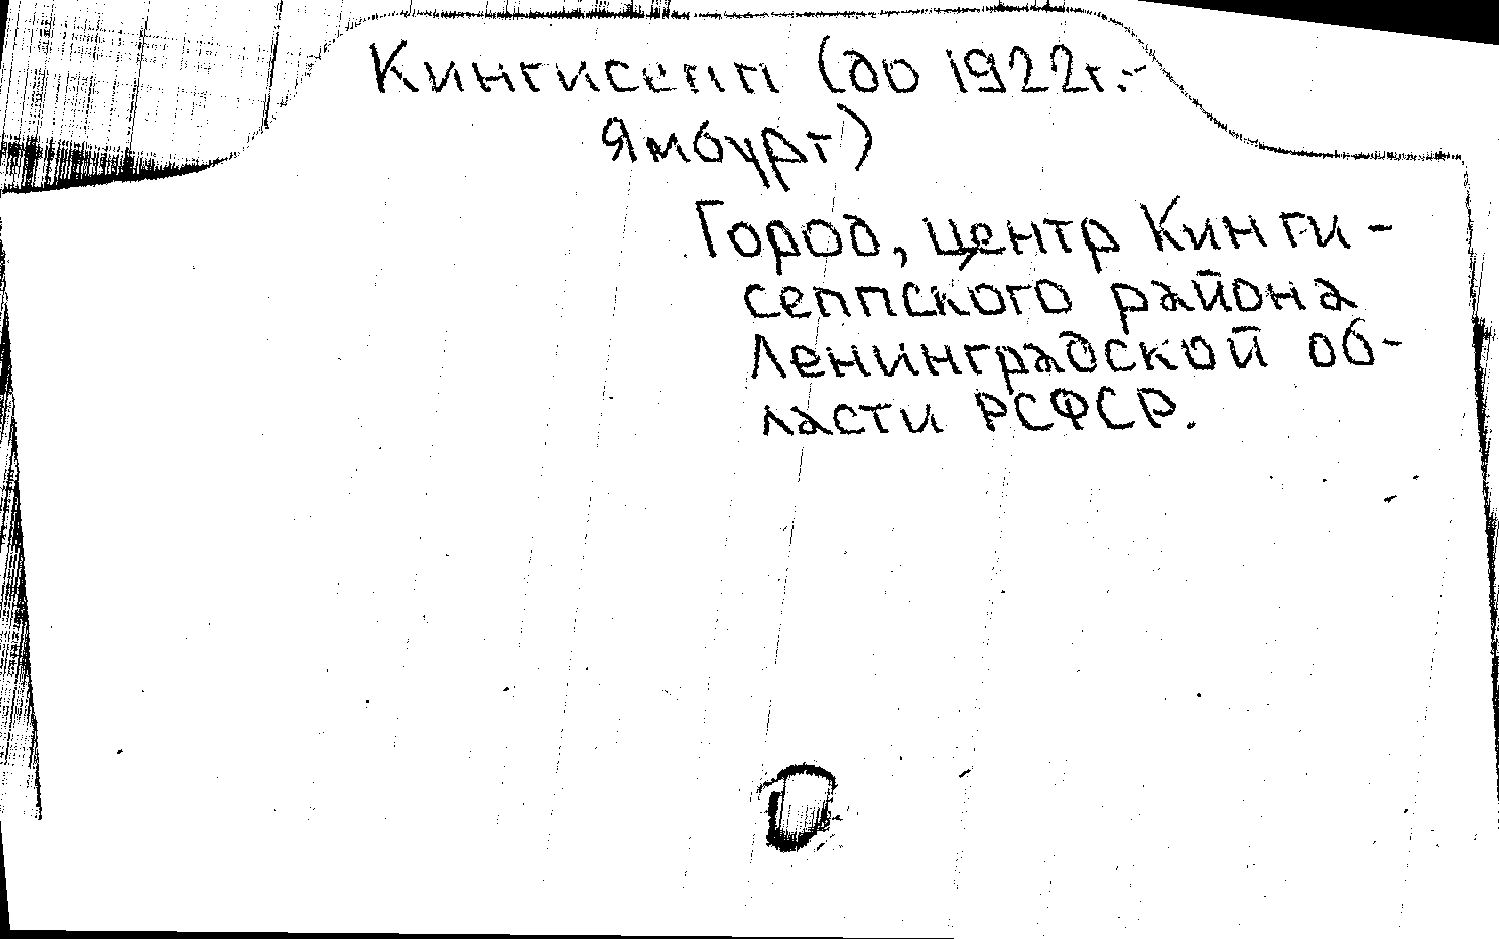 Кингисепп (до 1922г.-
Ямбург)
Город, центр Кинги-
сеппского района
Ленинградской об-
ласти РСФСР.